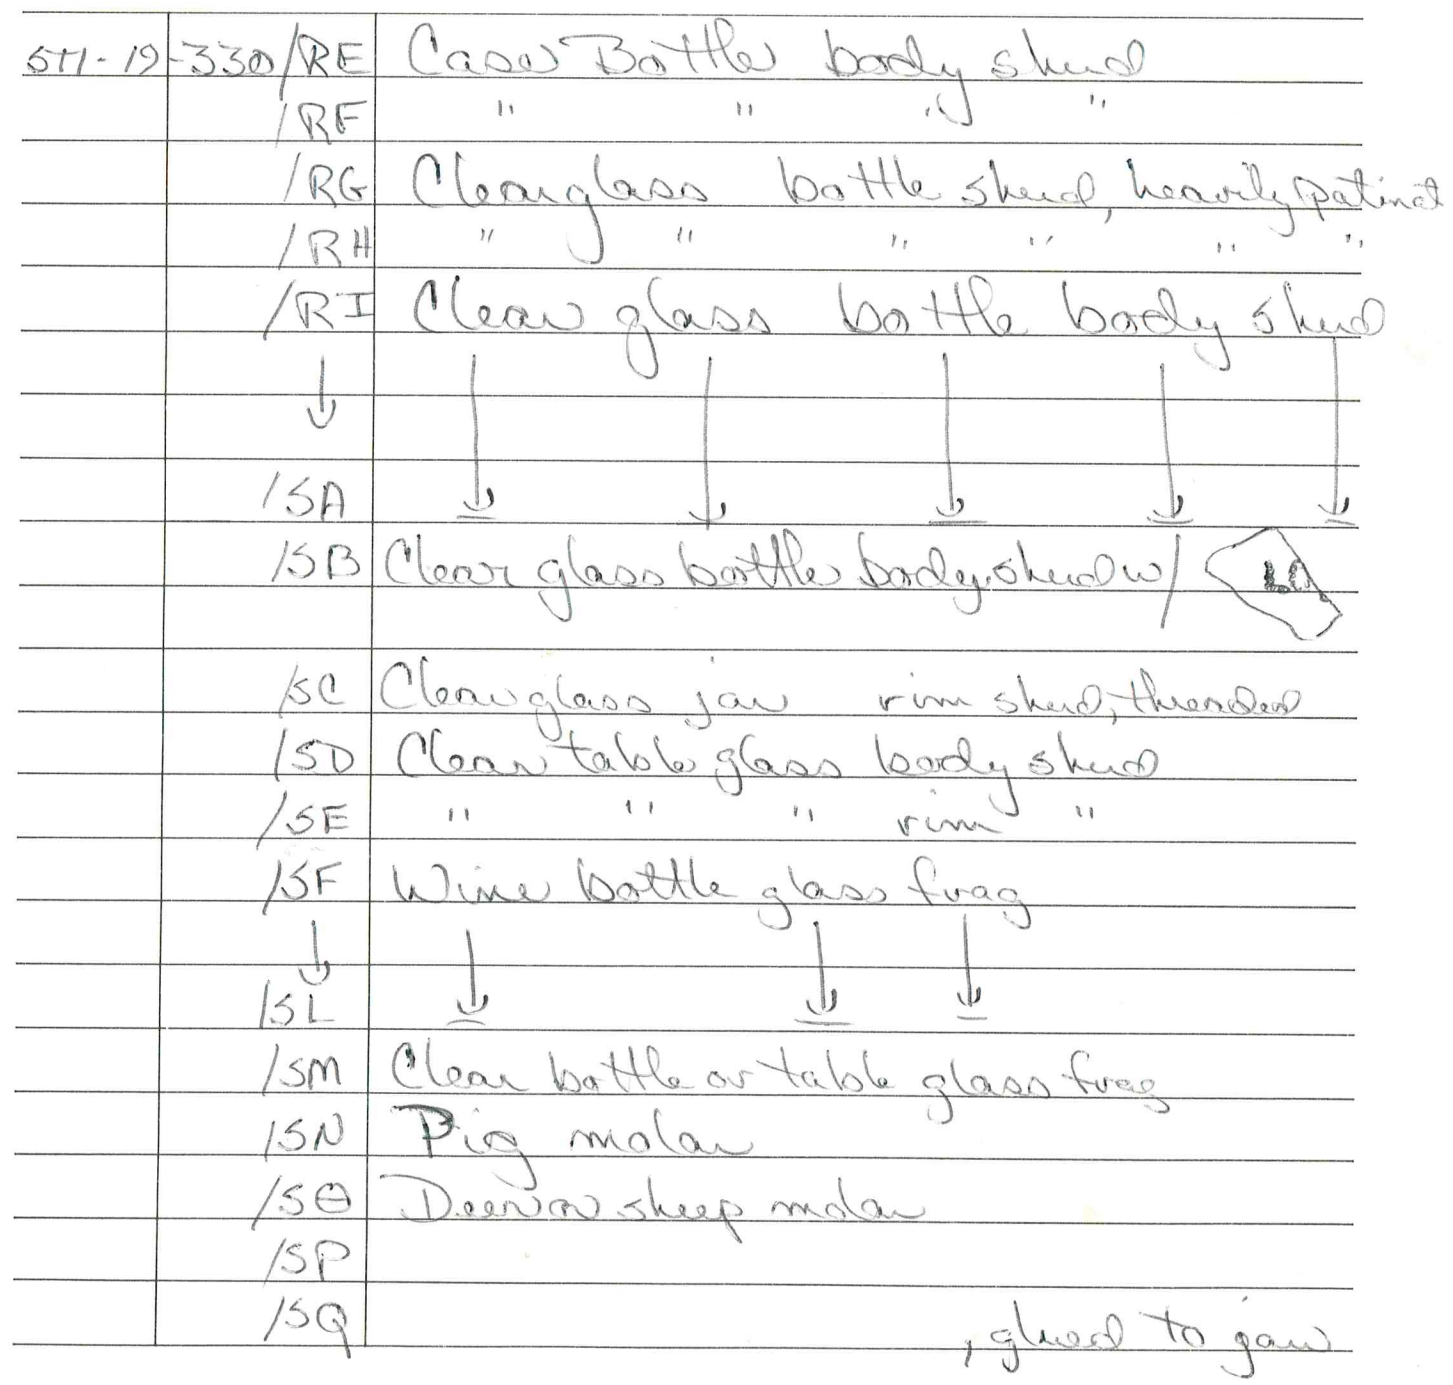 5TI-19 -330/RE Case Bottle body sherd
/RF " " " "
/RG Clear glass bottle sherd, heavily patinat
/RH " " " " " "
/RI Clear glass bottle body sherd
↓ ↓ ↓ ↓ ↓ ↓
/SA
/SB Clear glass bottle body sherd w/
/SC Clear glass jar rim sherd, threaded
/SD Clear table glass body sherd
/SE " " " rim "
/SF Wine bottle glass frag
↓ ↓ ↓ ↓
/SL
/SM Clear bottle or table glass frag
/SN Pig molar
/SO Deer or sheep molar
/SP
/SQ , glued to jaw